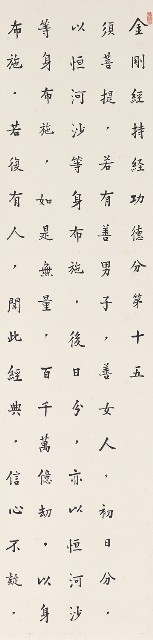 金剛經持經功德分第十五
須菩提，若有善男子，善女人，初日分，
以恒河沙等身布施，後日分，亦以恒河沙
等身布施，如是無量，百千萬億劫，以身
布施，若復有人，聞此經典，信心不疑，